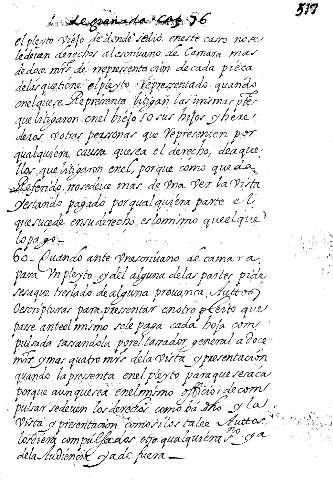 de granada Cap. 56
517
el pleyto viejo de donde salio. en este caso no se
le deven derechos al escrivano de Camara mas
de doce mrs. de rrepresentacion de cada pieca
de las que tiene el pleyto Representado quando
en el que se Representa litigan las mismas ptes.
que litigaron en el biejo o sus hijos y here
deros V otras personas que Representen por
qualquiera causa que sea el derecho, de aque
llos que litigaron en el, porque como que da
Referido, no se deve mas de Una Vez la Vista
y estando pagado por qualquiera parte e l
que sucede en su derecho, es lo mismo que el que
lo pago
60 – Quando ante Un escrivano de camara,
para Un pleyto, y del alguna de las partes pide
se saque treslado de alguna provanca, Auttos
o escripturas para presentar en otro pleyto que
pase ante el mismo sole paga cada hoja com
pulsada tasandola por el tasador general a doce
mrs. y mas quatro mrs. de la Vista y presentacion
quando la presenta en el pleyto para que se saca
porque aunque sea en el mismo officio de com
pulsar se deven los derechos como dicho y la
Vista y presentacion como si los tales Auttos
los viera compulsados otro qualquiera ssno. ya
de la Audiencia ya de fuera —